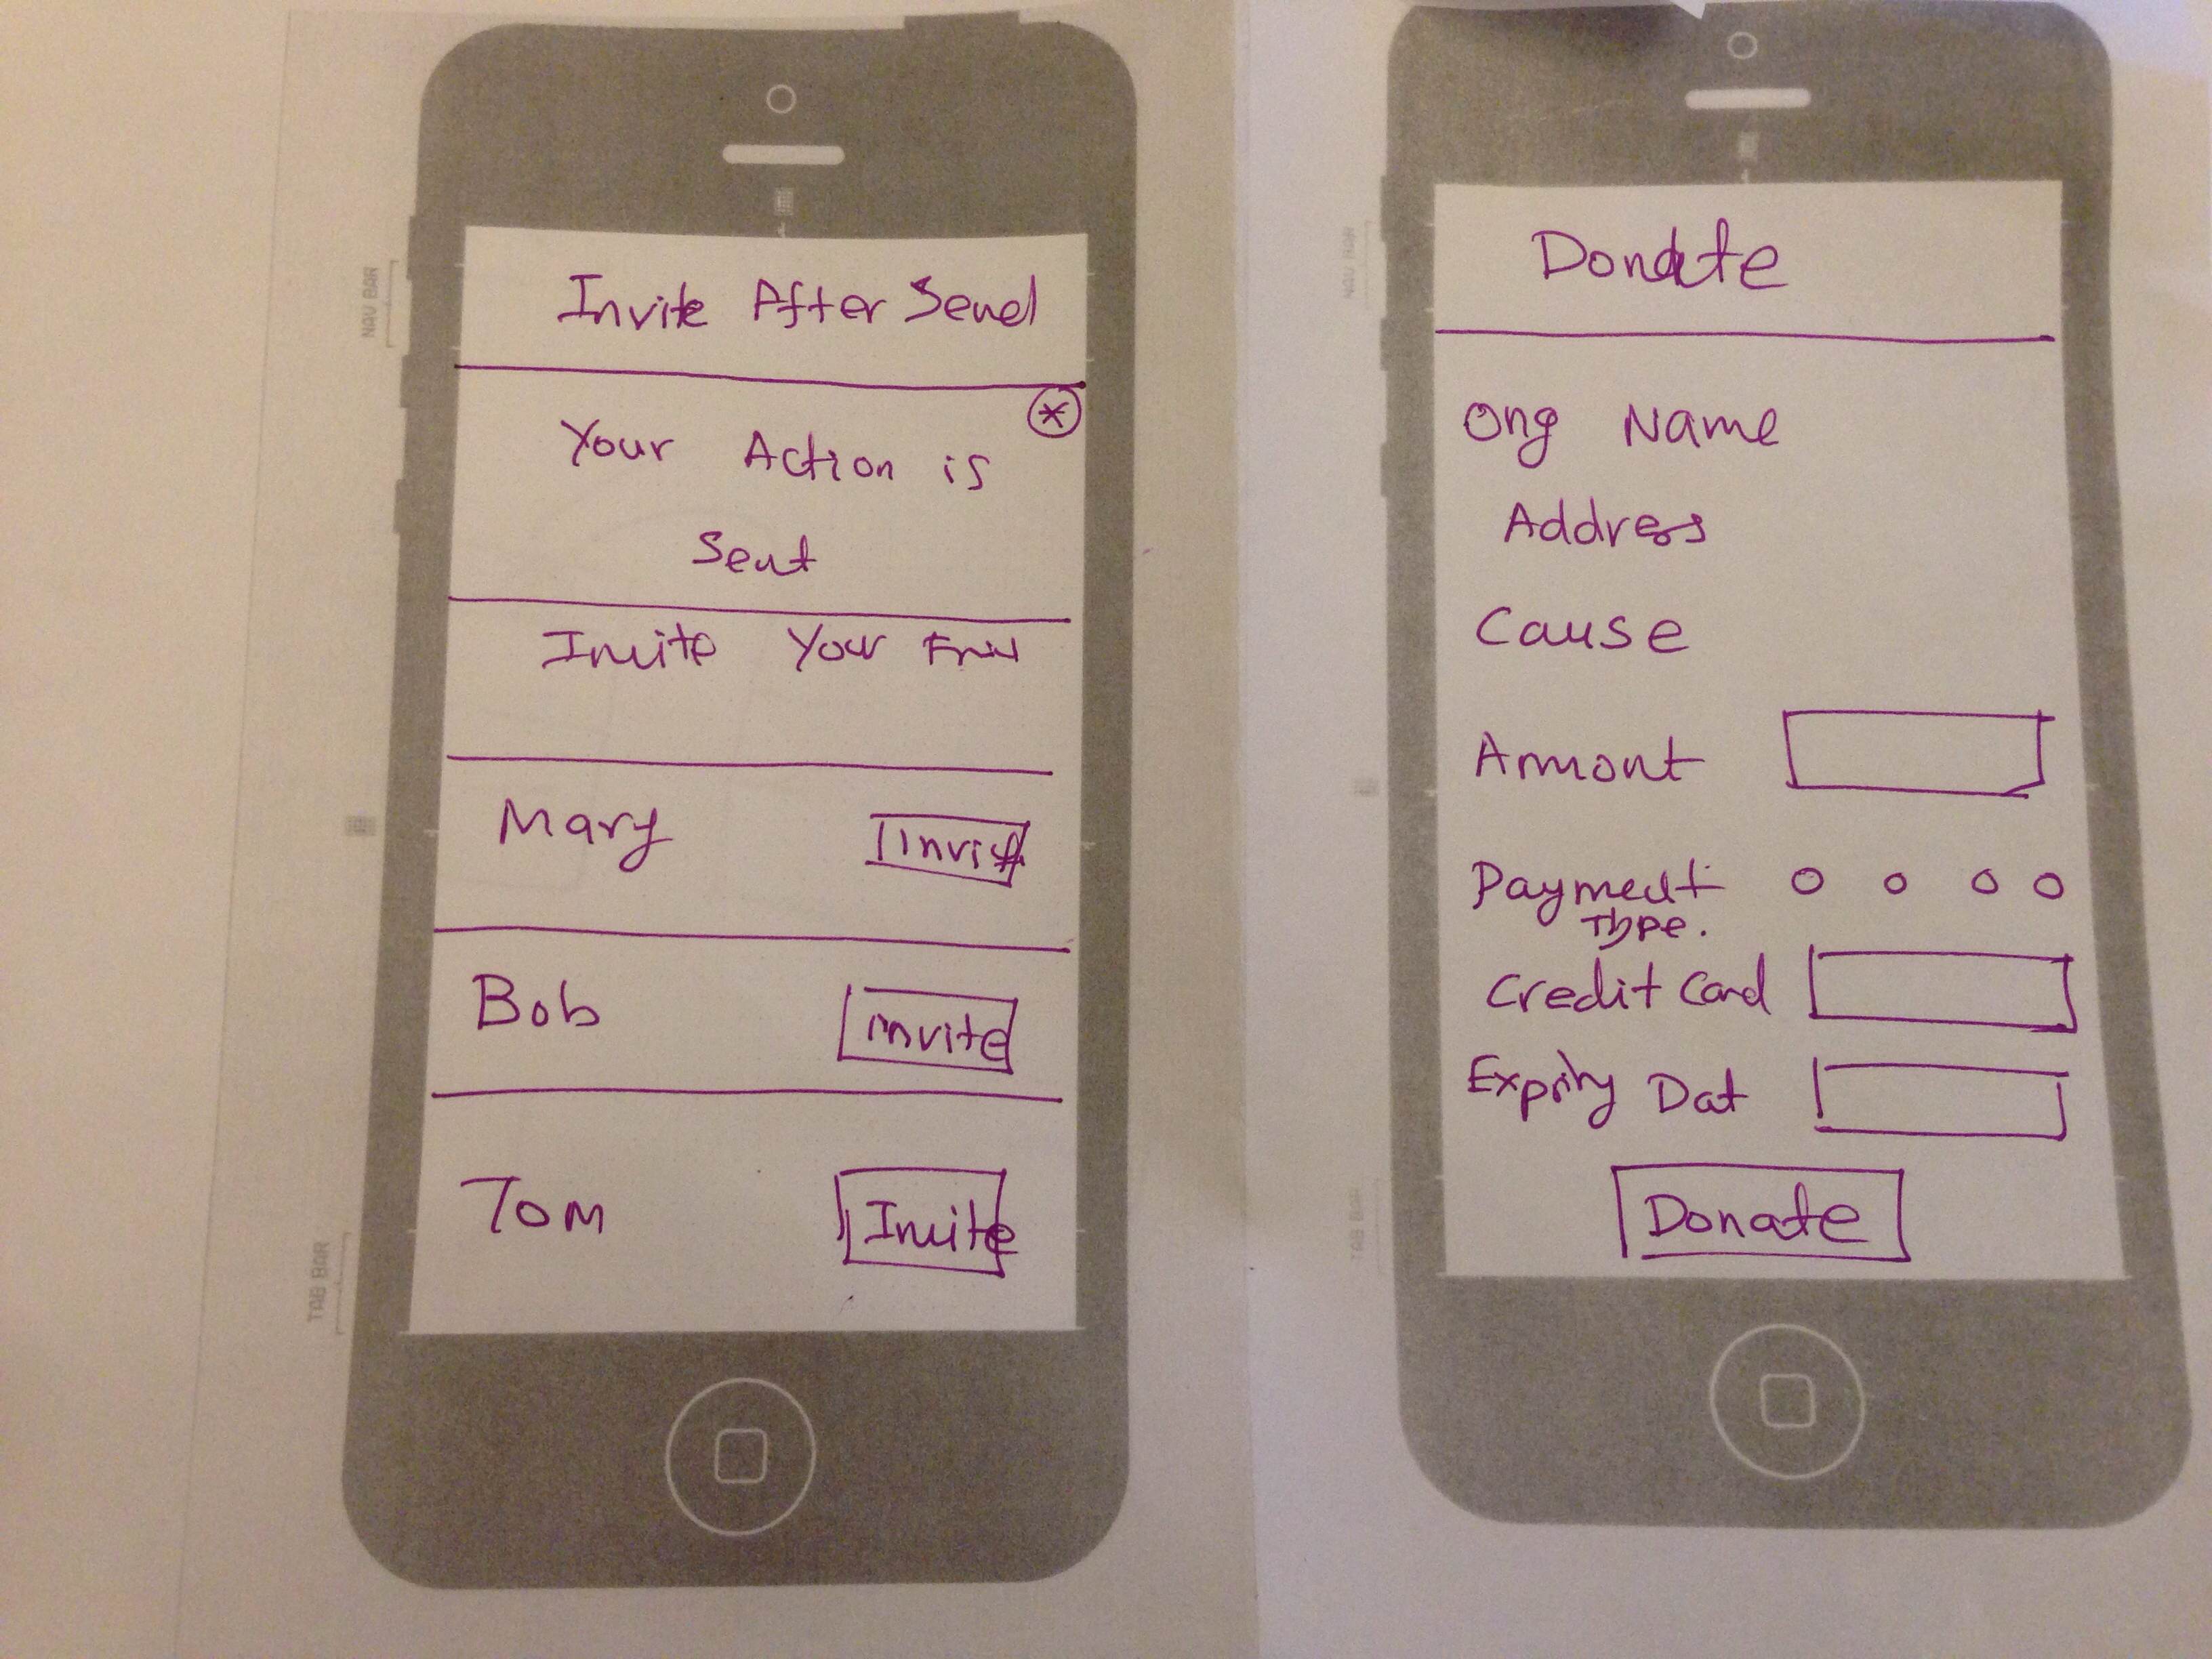 NAV BAR
Invite After Send
Your Action is
Sent
Invite Your
Mary Invite
Bob Invite
Tom Invite
TAB BAR
NAV BAR
Donate
Org Name
Address
Cause
Amont
Payment
Type.
Credit Card
Expiry Dat
Donate
TAB BAR